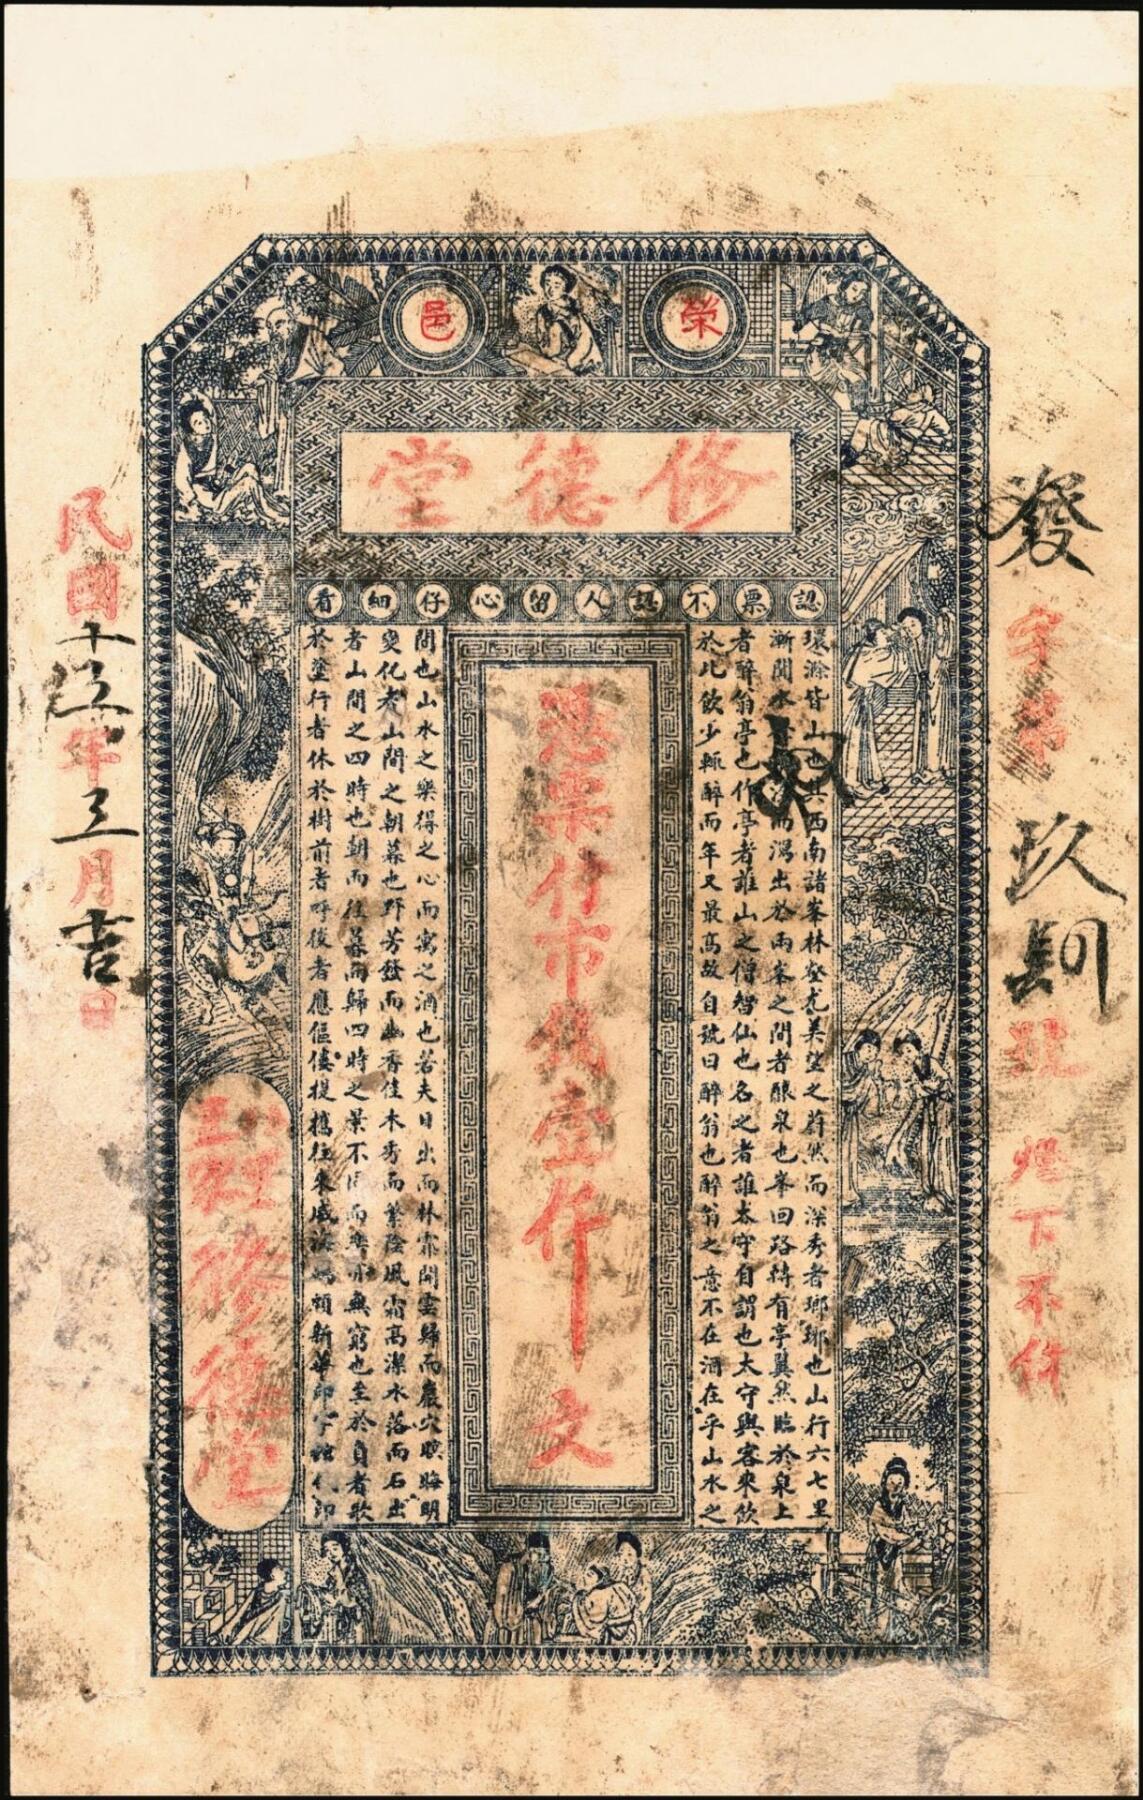 榮邑
修德堂
認票不認人留心仔細看
發字第玖號燈下不付
環滁皆山也其西南諸峯林壑尤美望之蔚然而深秀者瑯琊也山行六七里
漸聞水而瀉出於兩峯之間者釀泉也峯回路轉有亭翼然臨於泉上
者醉翁亭也作亭者誰山之僧智仙也名之者誰太守自謂也太守與客來飲
於此飲少輒醉而年又最高故自號曰醉翁也醉翁之意不在酒在乎山水之
憑票付市錢壹仟文
間也山水之樂得之心而寓之酒也若夫日出而林霏開雲歸而巖穴暝晦明
變化者山間之朝暮也野芳發而幽香佳木秀而繁陰風霜高潔水落而石出
者山間之四時也朝而往暮而歸四時之景不同而樂亦無窮也至於負者歌
於塗行者休於樹前者呼後者應傴僂提攜往來威海頭新華印字館代印
經理修德堂
民國十年三月吉日